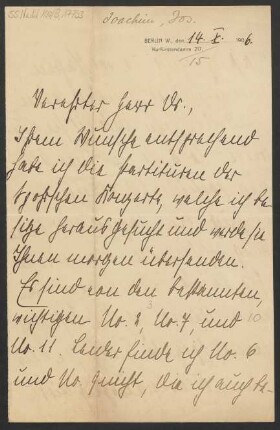 Joachim, Jos.
BERLIN W., den 14 X. 1906.
Kurfürstendamm 217
/15
Verehrter Herr Dr.,
Ihrem Wunsche entsprechend
habe ich die Partituren der
Spohrschen Konzerte, welche ich be-
sitze herausgesucht und werde sie
Ihnen morgen übersenden.
Es sind von den bekannten,
wichtigen No. 2, No. 7, und 10
No. 11. Leider finde ich No. 6
und No. 9 nicht, die ich auch be-